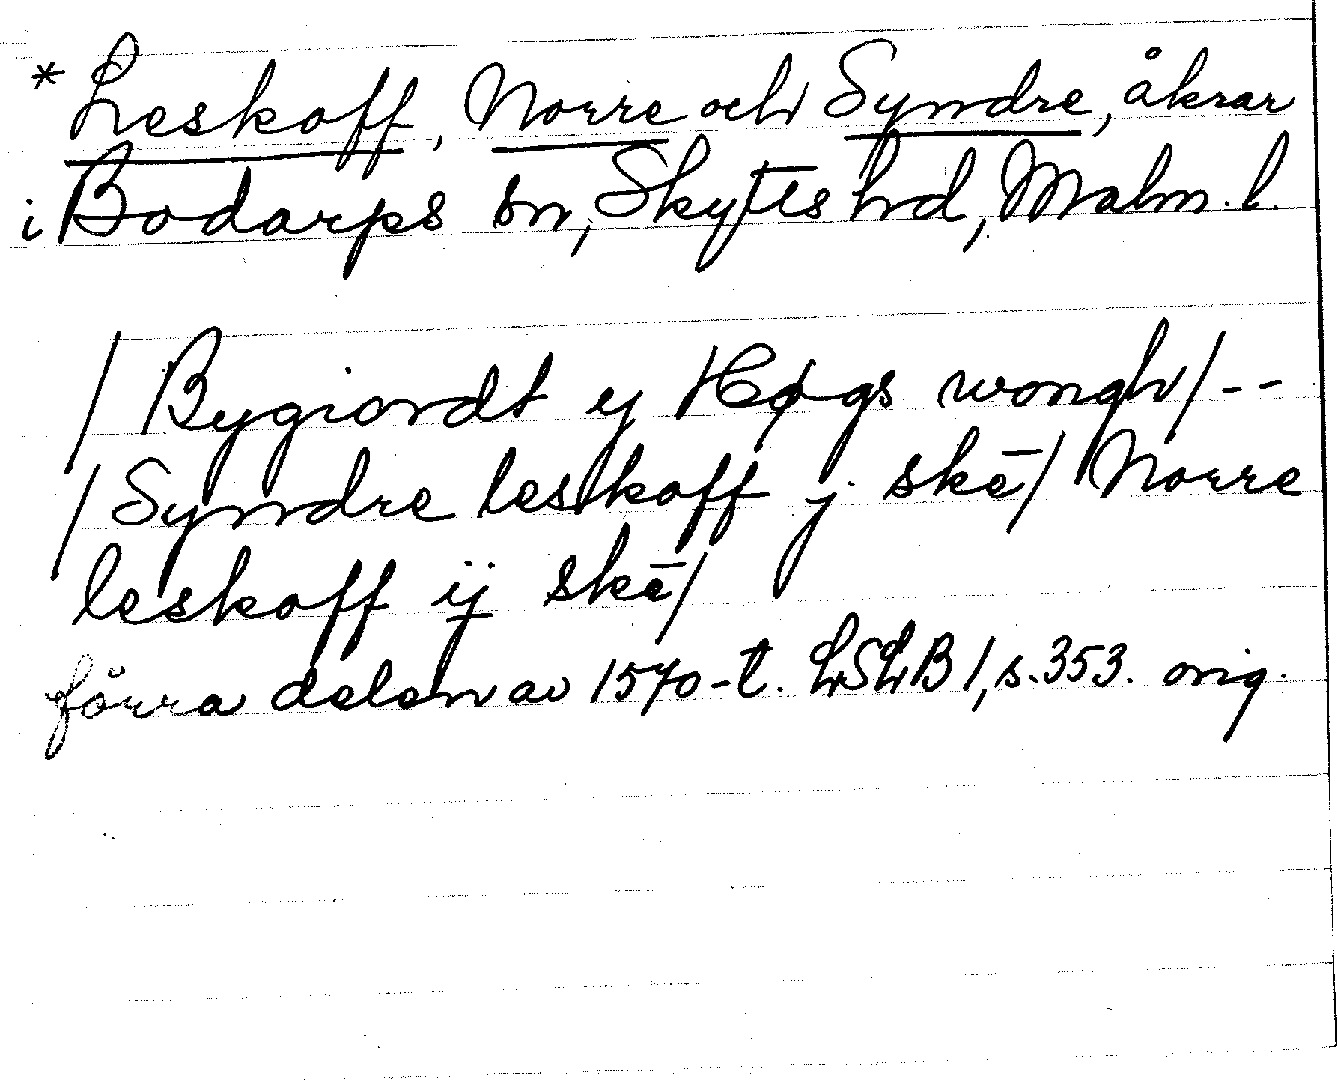 * Leskoff, Norre och Syndre, åkrar
i Bodarps sn, Skytts hd, Malm. l.
/ Bygiordt ij Høgs wongh / --
/ Syndre leskoff j skē / Norre
leskoff ij skē /
förra delen av 1570-t. LSLB 1, s. 353. orig.